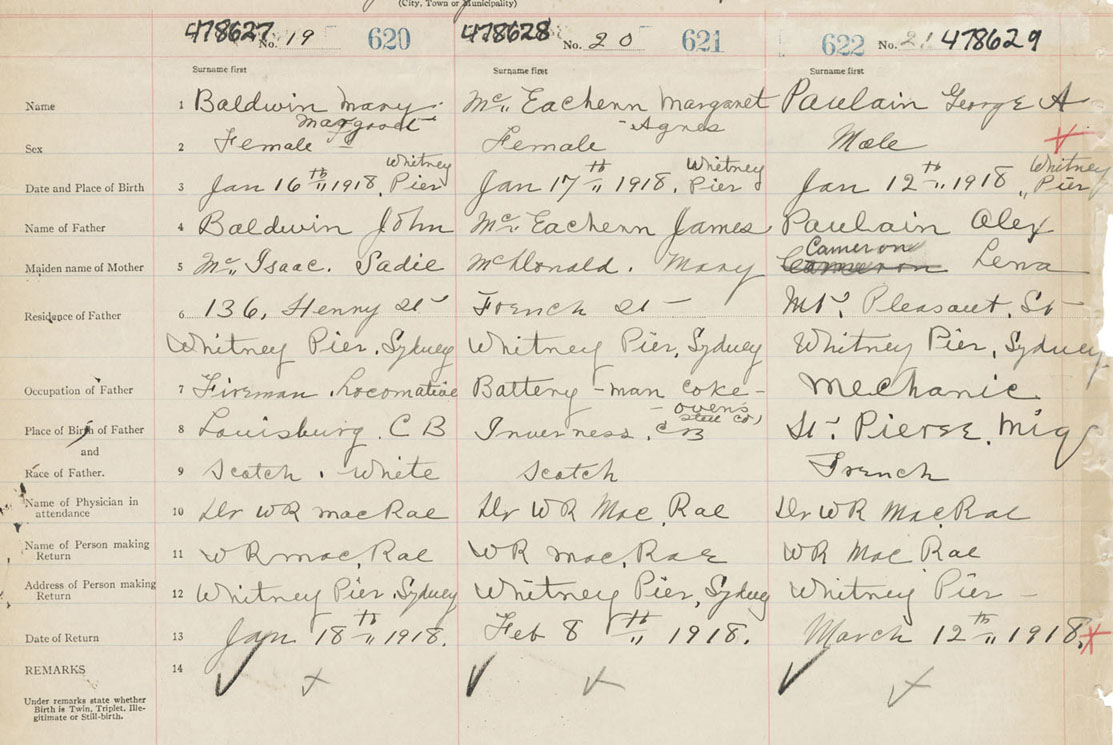 (City, Town or Municipality)
478627 No. 19 620 478628 No. 20 621 622 No. 21 478629
Surname first Surname first Surname first
Name 1 Baldwin Mary Mc" Eachenn Margaret Paulain George A
Margaret Agnes
Sex 2 Female Female Male
Whitney Whitney Whitney
Date and Place of Birth 3 Jan 16th" 1918, Pier Jan 17th" 1918, Pier Jan 12th" 1918 Pier
Name of Father 4 Baldwin John Mc" Eachenn James Paulain Alex
Cameron
Maiden name of Mother 5 Mc" Isaac. Sadie McDonald. Mary Cameron Lena
Residence of Father 6 136, Henry St French St Mt. Pleasant. St
Whitney Pier, Sydney Whitney Pier, Sydney Whitney Pier, Sydney
Occupation of Father 7 Fireman Locomative Battery - man Coke - Mechanic
ovens
Steel Co)
Place of Birth of Father 8 Louisburg. C B Inverness. C B St. Pierre, Miq
and
Race of Father. 9 Scotch. White Scotch French
Name of Physician in attendance 10 Dr WR MacRae Dr WR Mac, Rae Dr WR Mac, Rae
Name of Person making Return 11 WR Mac, Rae WR Mac, Rae WR Mac Rae
Address of Person making Return 12 Whitney Pier, Sydney Whitney Pier, Sydney Whitney Pier -
Date of Return 13 Jan 18th" 1918. Feb 8th" 1918. March 12th" 1918.
REMARKS 14
Under remarks state whether
Birth is Twin, Triplet, Ille-
gitimate or Still-birth.